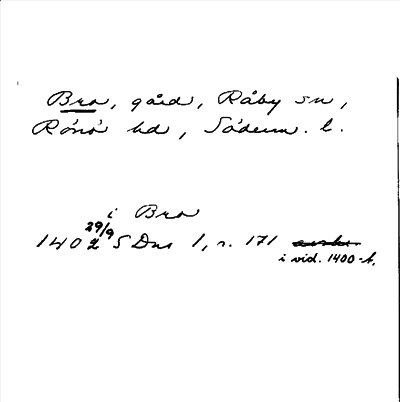 Bro, gård, Råby sn,
Rönö hd, Söderm. l.
i Bro
1402 29/9 SDns 1, s. 171
i vid. 1400-t.